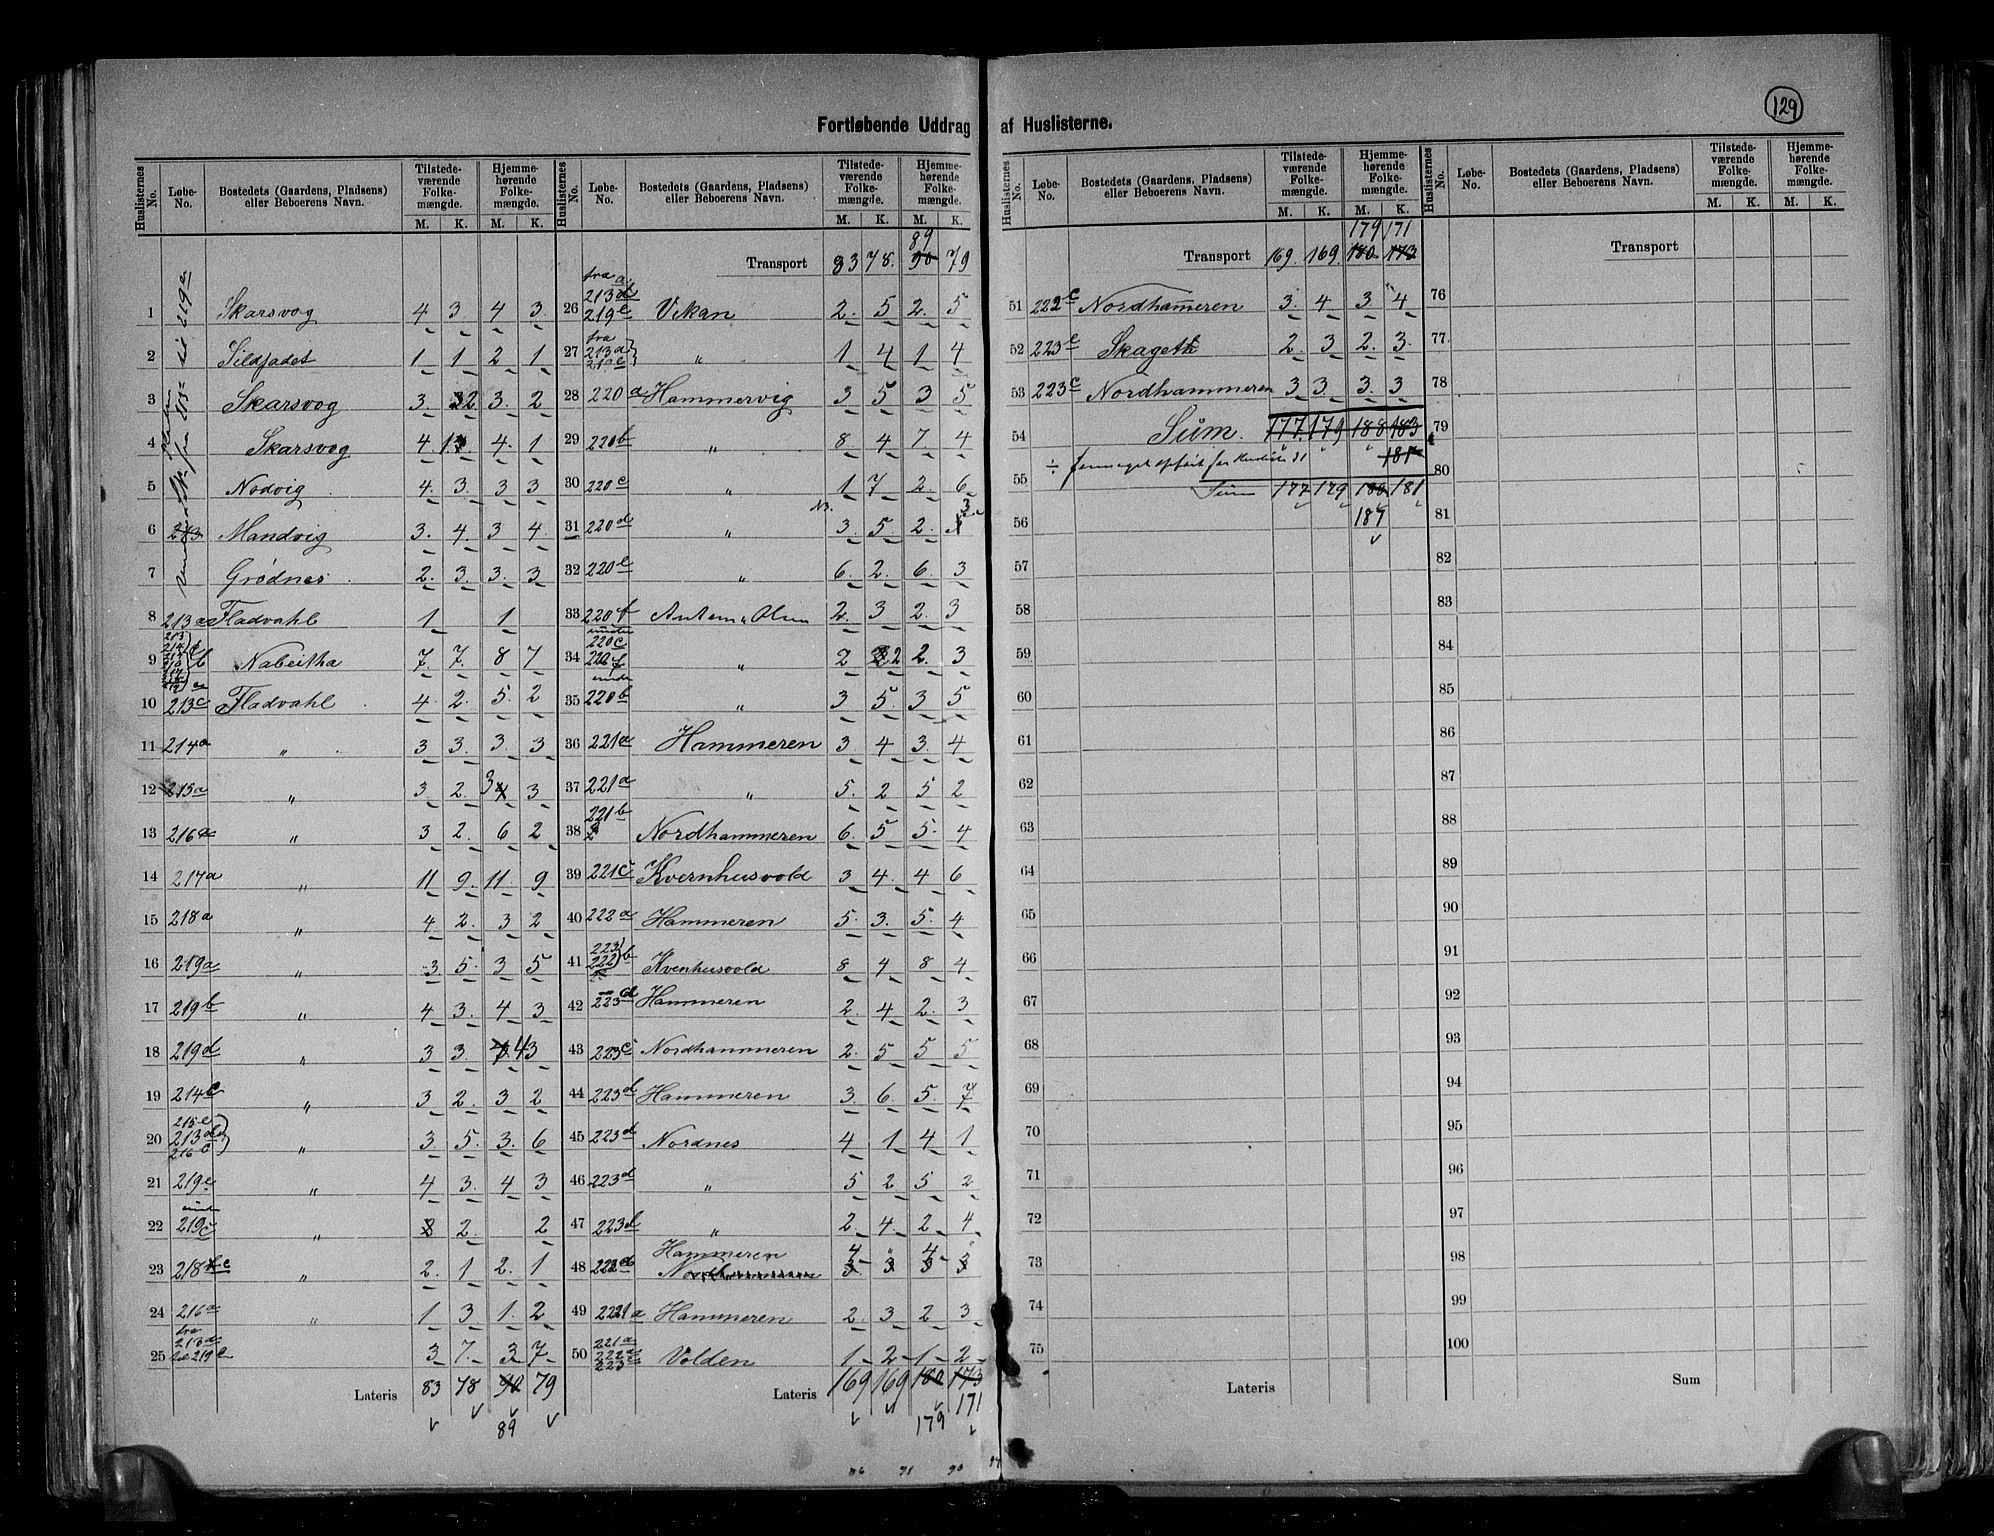 129
Fortløbende Uddrag af Huslisterne.
Huslisternes No. Løbe-No. Bostedets (Gaardens, Pladsens) eller Beboerens Navn. Tilstedeværende Folkemængde. M. K. Hjemmehørende Folkemængde. M. K.
1 Skarsvog 4 3 4 3
2 Sildjadet 1 1 2 1
3 Skarsvog 3. 2 3. 2
4 Skarsvog 4. 1 4. 1
5 Nodvig 4. 3. 3 3
6 213 Mandvig 3. 4. 3 4
7 Grødnes 2. 3. 3. 3
8 213a Fladvahl 1 1
9 Nabeitha 7. 7. 8 7
10 213c Fladvahl 4. 2. 5. 2
11 214a " 3 3. 3. 3
12 215a " 3 2. 3 3
13 216a " 3 2. 6 2
14 217a " 11 9. 11 9
15 218a " 4 2. 3 2
16 219a " 3 5. 3 5
17 219b " 4 3. 4 3
18 219d " 3 3. 4 3
19 214c " 3 2. 3 2
20 215e 213d 216b " 3. 5. 3. 6
21 219e " 4 3. 4 3
22 219c " 2. 2
23 218c " 2. 1 2. 1
24 216a " 1 3 1. 2
25 fra 213d til 219e 3 7. 3 7.
Lateris 83 78 90 79
89
Huslisternes No. Løbe-No. Bostedets (Gaardens, Pladsens) eller Beboerens Navn. Tilstedeværende Folkemængde. M. K. Hjemmehørende Folkemængde. M. K.
89
Transport 83 78. 90 79
26 fra 213d 219e Vikan 2. 5 2. 5
27 fra 213a 219e " 1 4 1 4
28 220a Hammervig 3 5 3 5
29 220b " 8 4 7. 4
30 220c " 1 7 2. 6
31 220d " 3. 5 2. 3
32 220e " 6. 2. 6 3
33 220f Antem. Olsen 2. 3 2. 3
34 under 220c 220f " 2 2 2. 3
35 under 220b " 3 5. 3 5
36 221a Hammeren 3. 4 3. 4
37 221a " 5. 2 5 2
38 221b Nordhammeren 6. 5 5. 4
39 221c Kvernhusvold 3 4. 4 6
40 222a Hammeren 5. 3. 5. 4
41 223 222 b Kvenhusvold 8 4 8 4
42 223d Hammeren 2 4 2. 3
43 223c Nordhammeren 2. 5 5 5
44 223d Hammeren 3. 6. 5. 7
45 223d Nordnes 4 1 4 1
46 223d " 5 2 5 2
47 223d " 2. 4. 2 4
Hammeren 4 " 4 "
48 222d Nordhammeren 3 3 3 3
49 221a Hammeren 2 3 2 3
50 221a 222a 223c Volden 1 2 1 2
Lateris 169 169 180 173
179 171
Huslisternes No. Løbe-No. Bostedets (Gaardens, Pladsens) eller Beboerens Navn. Tilstedeværende Folkemængde. M. K. Hjemmehørende Folkemængde. M. K.
179 171
Transport 169. 169. 180 173
51 222c Nordhammeren 3. 4 3. 4
52 223e Skageth 2. 3 2. 3.
53 223c Nordhammeren 3 3. 3. 3
54 Sum. 177. 179 188 183
181
55 Sum 177 179 188 181
56 187
57
58
59
60
61
62
63
64
65
66
67
68
69
70
71
72
73
74
75
Lateris
Huslisternes No. Løbe-No. Bostedets (Gaardens, Pladsens) eller Beboerens Navn. Tilstedeværende Folkemængde. M. K. Hjemmehørende Folkemængde. M. K.
Transport
76
77
78
79
80
81
82
83
84
85
86
87
88
89
90
91
92
93
94
95
96
97
98
99
100
Sum